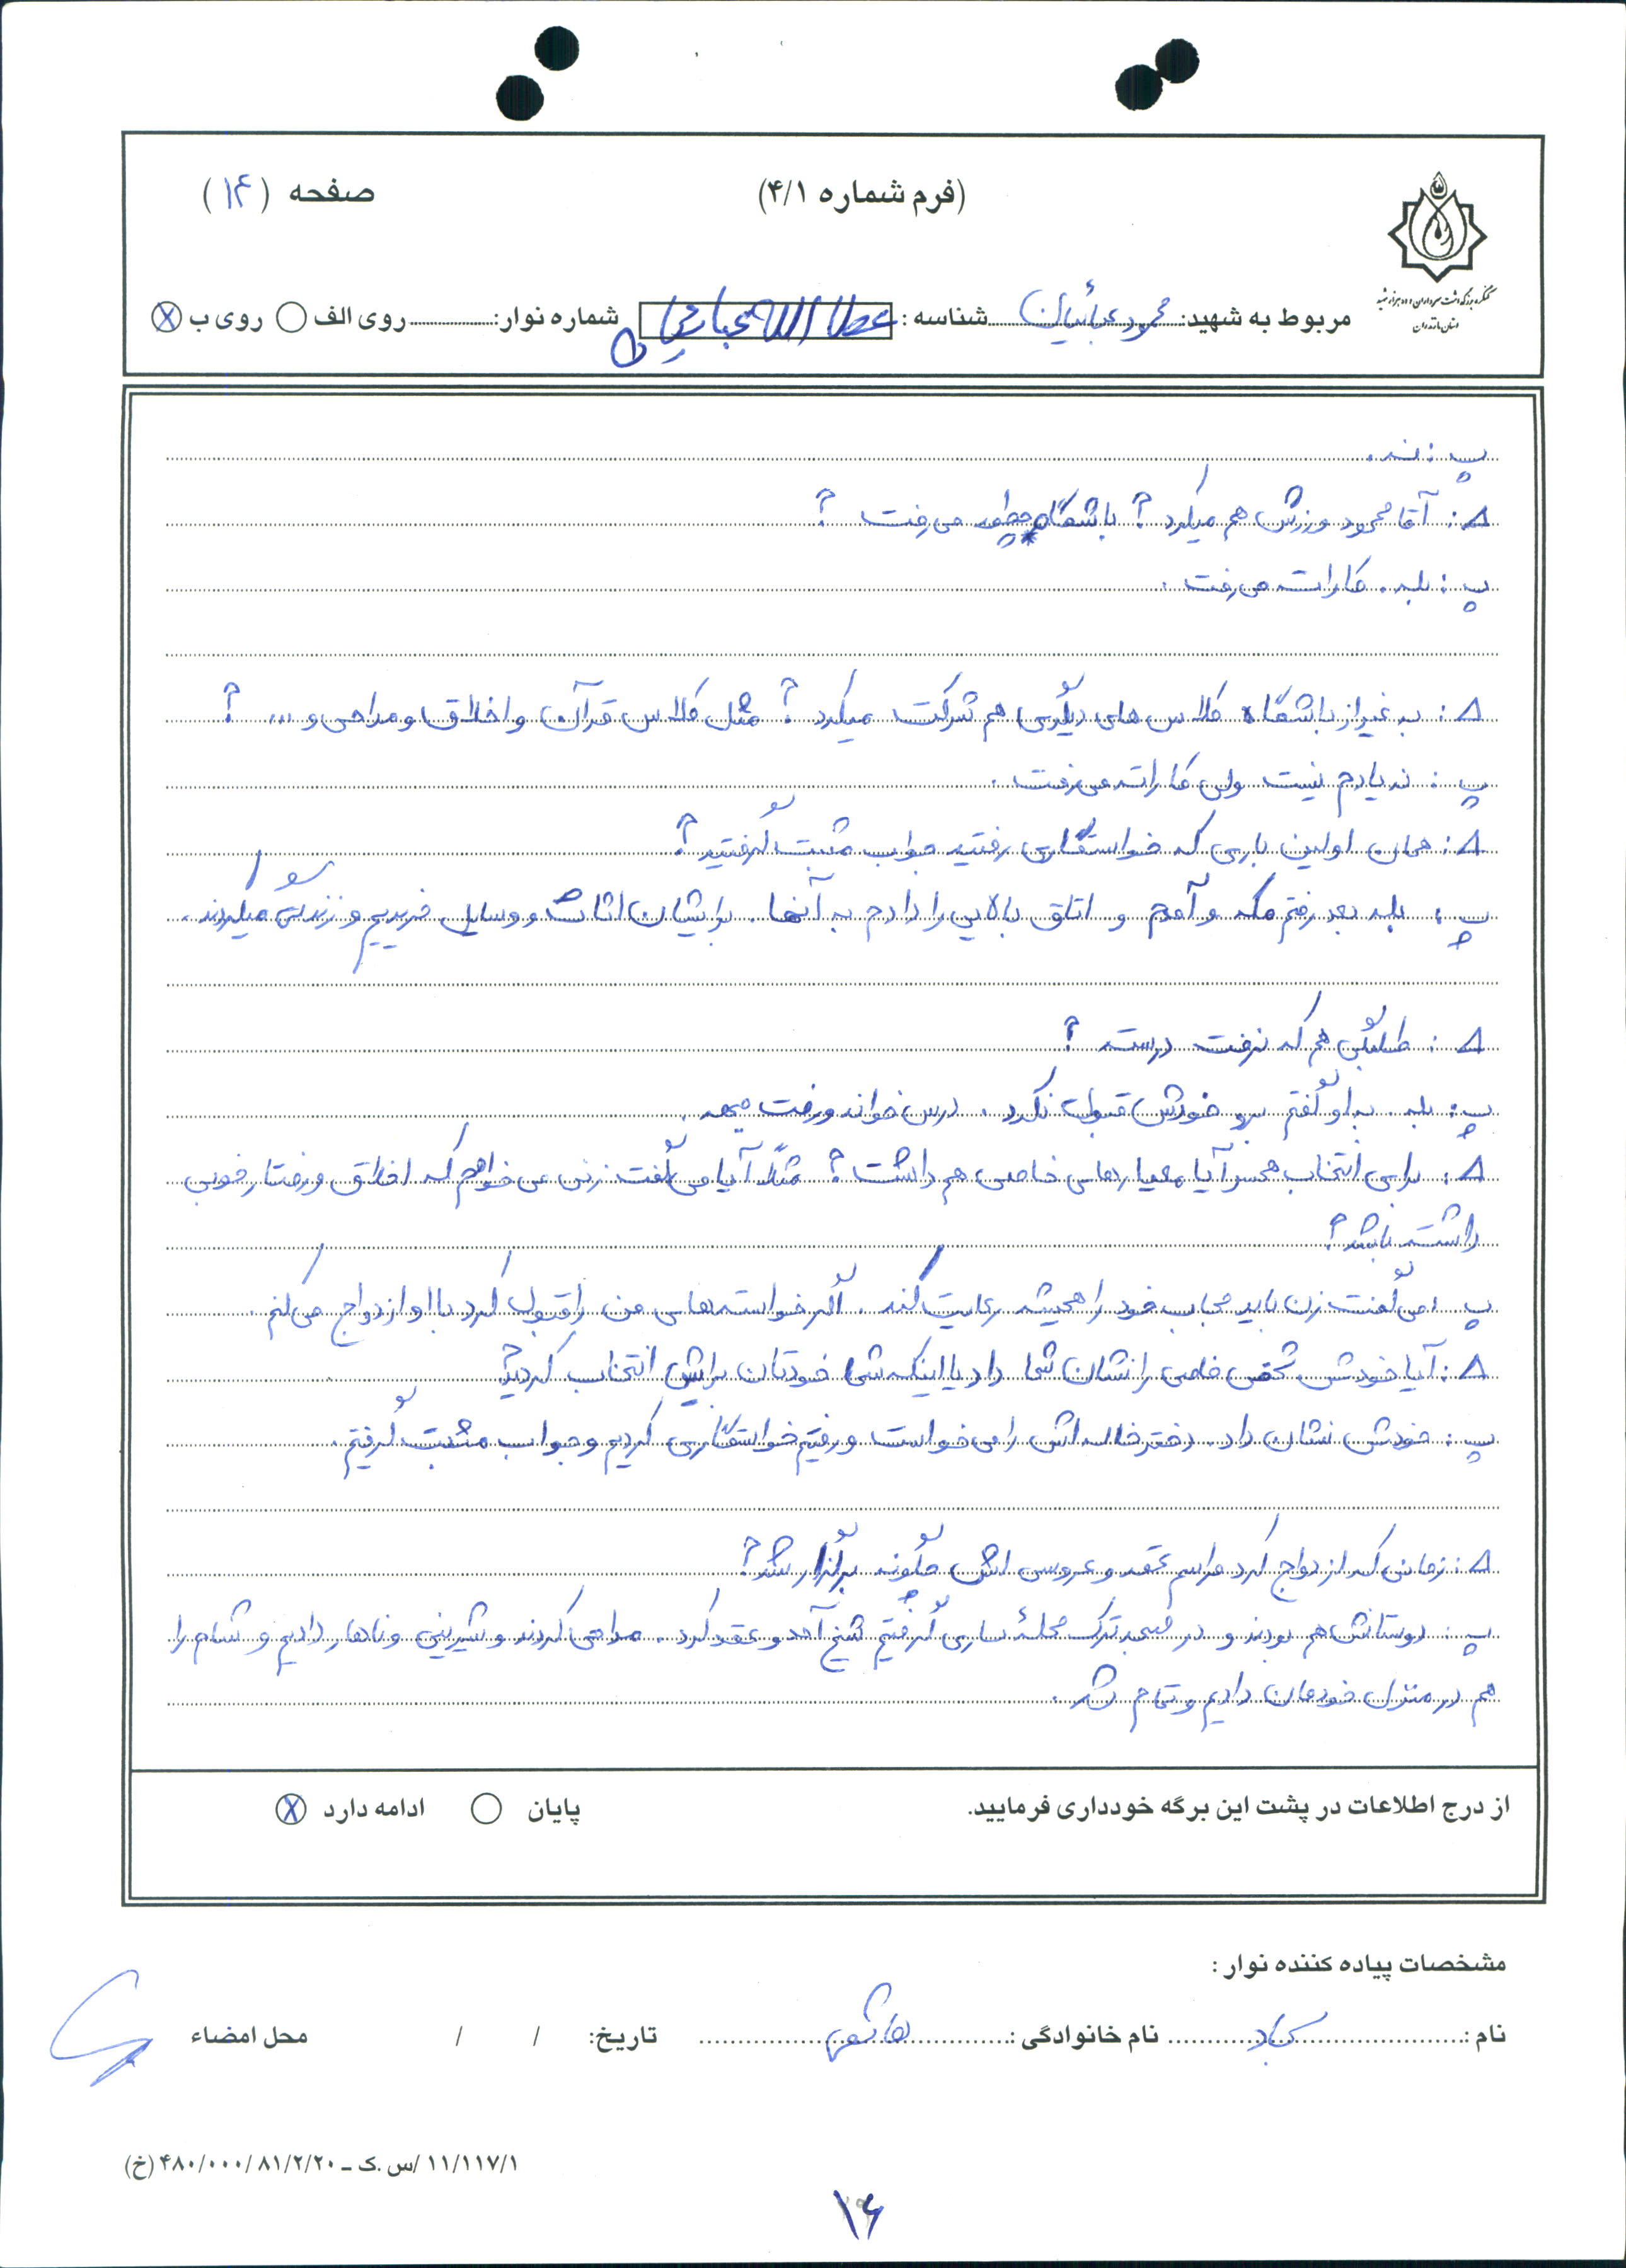 (فرم شماره ۴/۱)
صفحه (۱۴)
کنگره بزرگداشت سرداران و ده هزار شهید
استان مازندران
مربوط به شهید: محمود عباسیان شناسه: عطاالله شماره نوار: روی الف روی ب
پ: نه.
Δ: آقا محمود ورزش هم میکرد؟ باشگاه چطور می رفت؟
پ: بله. کاراته می رفت.
Δ: به غیر از باشگاه کلاس های دیگری هم شرکت میکرد؟ مثل کلاس قرآن و اخلاق و مداحی و ...؟
پ: نه یادم نیست ولی کاراته می رفت.
Δ: همان اولین باری که خواستگاری رفتید جواب مثبت گرفتید؟
پ: بله بعد رفتم مکه و آمدم و اتاق بالایی را دادم به آنها. برایشان اثاث و وسایل خریدیم و زندگی میکردند.
Δ: طلبگی هم که نرفت درسته؟
پ: بله. به او گفتم خودش قبول نکرد. درس خواند و رفت جبهه.
Δ: برای انتخاب همسر آیا معیارهای خاصی هم داشت؟ مثلاً آیا می گفت زنی می خواهم که اخلاق و رفتار خوبی
داشته باشد؟
پ: می گفت زن باید حجاب خود را همیشه رعایت کند. اگر خواسته های من را قبول کرد با او ازدواج می کنم.
Δ: آیا خودش شخص خاصی را نشان شما داد یا اینکه شما خودتان برایش انتخاب کردید؟
پ: خودش نشان داد. دختر خاله اش را می خواست و رفتیم خواستگاری کردیم و جواب مثبت گرفتیم.
Δ: زمانی که ازدواج کرد مراسم عقد و عروسی اش چگونه برگزار شد؟
پ: دوستانش هم بودند و در مسجد ترک محلۀ ساری گرفتیم شیخ آمد و عقد کرد. مداحی کردند و شیرینی و ناهار دادیم و شام را
هم در منزل خودمان دادیم و تمام شد.
از درج اطلاعات در پشت این برگه خودداری فرمایید. پایان ادامه دارد
مشخصات پیاده کننده نوار:
نام: نام خانوادگی: هاشمی تاریخ: / / محل امضاء
۱۱/۱۱۷/۱ /س.ک ـ ۴۸۰/۰۰۰/۸۱/۲/۲۰ (خ)
۱۶